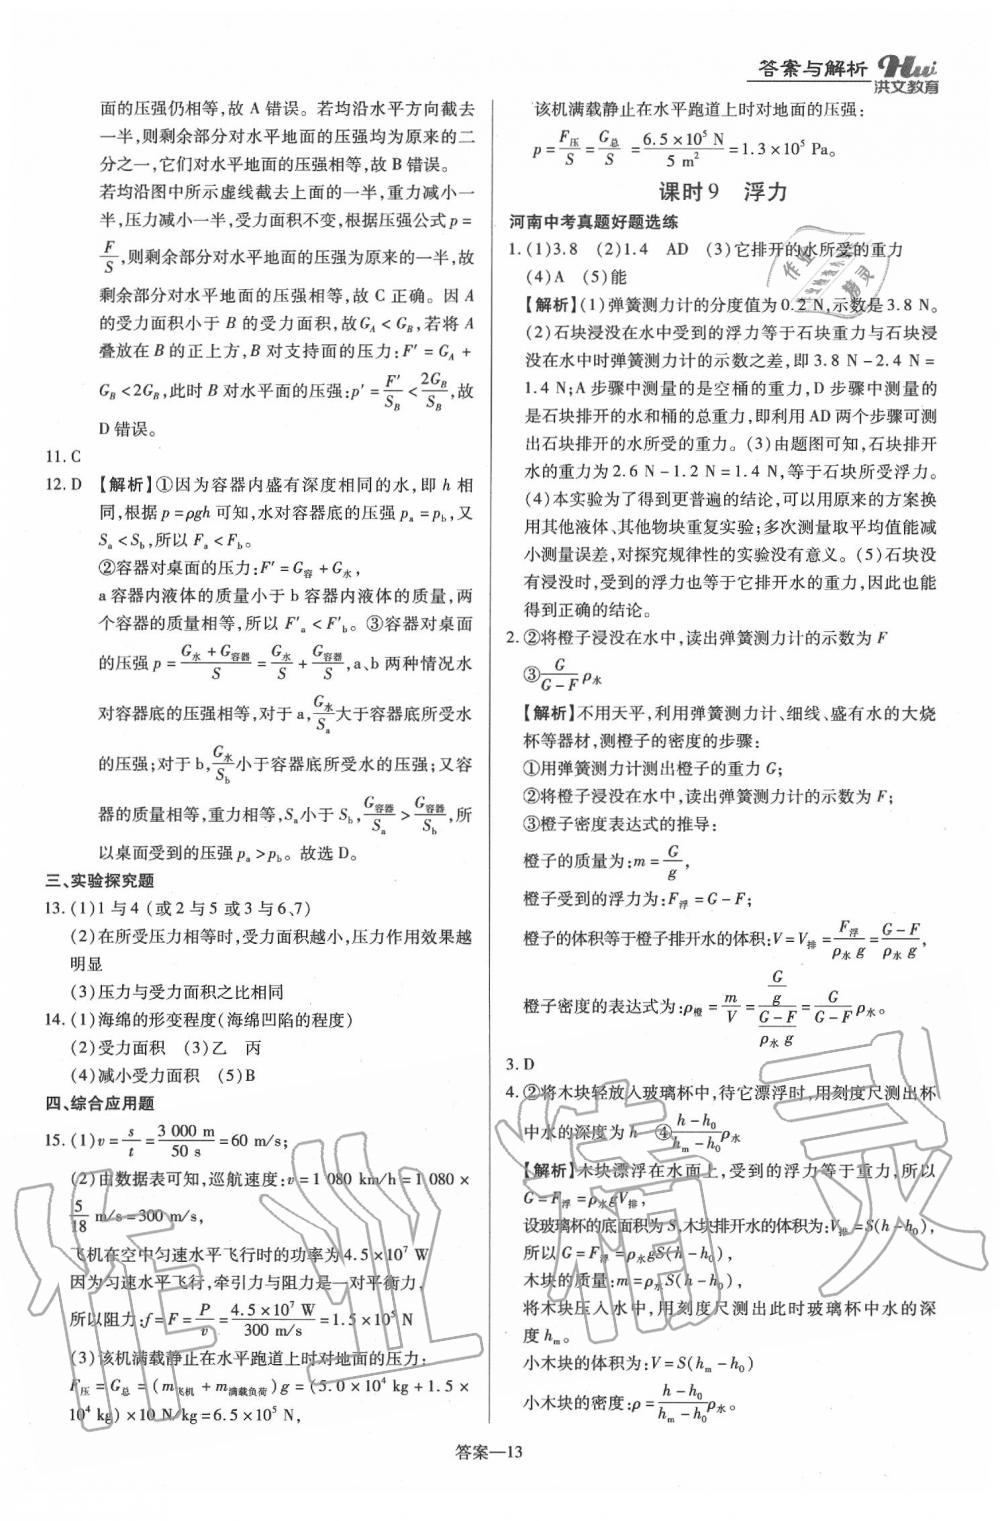 答案与解析 Hui
洪文教育
面的压强仍相等,故 A 错误。若均沿水平方向截去
一半,则剩余部分对水平地面的压强均为原来的二
分之一,它们对水平地面的压强相等,故 B 错误。
若均沿图中所示虚线截去上面的一半,重力减小一
半,压力减小一半,受力面积不变,根据压强公式 p =
F/S,则剩余部分对水平地面的压强均不变,它们的
剩余部分对水平地面的压强相等,故 C 正确。因 A
的受力面积小于 B 的受力面积,故G_A < G_B,若将 A
叠放在 B 的正上方,B 对支持面的压力:F' = G_A +
G_B <2G_B,此时 B 对水平面的压强:p' = F'/S_B < 2G_B/S_B,故
D 错误。
11. C
12. D 【解析】①因为容器内盛有深度相同的水,即 h 相
同,根据 p=ρgh 可知,水对容器底的压强 p_a = p_b,又
S_a < S_b,所以 F_a < F_b。
②容器对桌面的压力:F' = G_容 + G_水,
a 容器内液体的质量小于 b 容器内液体的质量,两
个容器的质量相等,所以 F'_a < F'_b。③容器对桌面
的压强 p = (G_水 + G_容器)/S = G_水/S + G_容器/S,a、b 两种情况水
对容器底的压强相等,对于 a,G_水/S_a大于容器底所受水
的压强;对于 b,G_水/S_b小于容器底所受水的压强;又容
器的质量相等,重力相等,S_a小于 S_b,G_容器/S_a > G_容器/S_b,所
以桌面受到的压强 p_a > p_b。故选 D。
三、实验探究题
13. (1)1 与 4 (或 2 与 5 或 3 与 6、7)
(2)在所受压力相等时,受力面积越小,压力作用效果越
明显
(3)压力与受力面积之比相同
14. (1)海绵的形变程度(海绵凹陷的程度)
(2)受力面积 (3)乙 丙
(4)减小受力面积 (5)B
四、综合应用题
15. (1)v = s/t = 3 000 m/50 s = 60 m/s;
(2)由数据表可知,巡航速度:v = 1 080 km/h = 1 080 ×
5/18 m/s = 300 m/s,
飞机在空中匀速水平飞行时的功率为 4.5×10⁷ W
因为匀速水平飞行,牵引力与阻力是一对平衡力,
所以阻力:f = F = P/v = 4.5×10⁷ W/300 m/s = 1.5×10⁵ N
(3)该机满载静止在水平跑道上时对地面的压力:
F_压 = G_总 = (m_飞机 + m_满载负荷)g = (5.0×10⁴ kg + 1.5×
10⁴ kg)×10 N/kg = 6.5×10⁵ N,
该机满载静止在水平跑道上时对地面的压强:
p = F_压/S = G_总/S = 6.5×10⁵ N/5 m² = 1.3×10⁵ Pa。
课时 9 浮力
河南中考真题好题选练
1. (1)3.8 (2)1.4 AD (3)它排开的水所受的重力
(4)A (5)能
【解析】(1)弹簧测力计的分度值为 0.2 N,示数是 3.8 N。
(2)石块浸没在水中受到的浮力等于石块重力与石块浸
没在水中时弹簧测力计的示数之差,即 3.8 N - 2.4 N =
1.4 N;A 步骤中测量的是空桶的重力,D 步骤中测量的
是石块排开的水和桶的总重力,即利用 AD 两个步骤可测
出石块排开的水所受的重力。(3)由题图可知,石块排开
水的重力为 2.6 N - 1.2 N = 1.4 N,等于石块所受浮力。
(4)本实验为了得到更普遍的结论,可以用原来的方案换
用其他液体、其他物块重复实验;多次测量取平均值能减
小测量误差,对探究规律性的实验没有意义。(5)石块没
有浸没时,受到的浮力也等于它排开水的重力,因此也能
得到正确的结论。
2. ②将橙子浸没在水中,读出弹簧测力计的示数为 F
③G/(G-F) ρ_水
【解析】不用天平,利用弹簧测力计、细线、盛有水的大烧
杯等器材,测橙子的密度的步骤:
①用弹簧测力计测出橙子的重力 G;
②将橙子浸没在水中,读出弹簧测力计的示数为 F;
③橙子密度表达式的推导:
橙子的质量为:m = G/g
橙子受到的浮力为:F_浮 = G - F;
橙子的体积等于橙子排开水的体积:V = V_排 = F_浮/(ρ_水 g) = (G-F)/(ρ_水 g),
橙子密度的表达式为:ρ_橙 = m/V = (G/g)/((G-F)/(ρ_水 g)) = G/(G-F) ρ_水。
3. D
4. ②将木块轻放入玻璃杯中,待它漂浮时,用刻度尺测出杯
中水的深度为 h ④(h-h₀)/(h_m-h₀) ρ_水
【解析】木块漂浮在水面上,受到的浮力等于重力,所以
G = F_浮 = ρ_水gV_排,
设玻璃杯的底面积为 S,木块排开水的体积为:V_排 = S(h-h₀),
所以 G = F_浮 = ρ_水gS(h-h₀),
木块的质量:m = ρ_水S(h-h₀)
将木块压入水中,用刻度尺测出此时玻璃杯中水的深
度 h_m。
小木块的体积为:V = S(h_m-h₀)
小木块的密度:ρ = (h-h₀)/(h_m-h₀) ρ_水。
答案—13
作业精灵
作业精灵